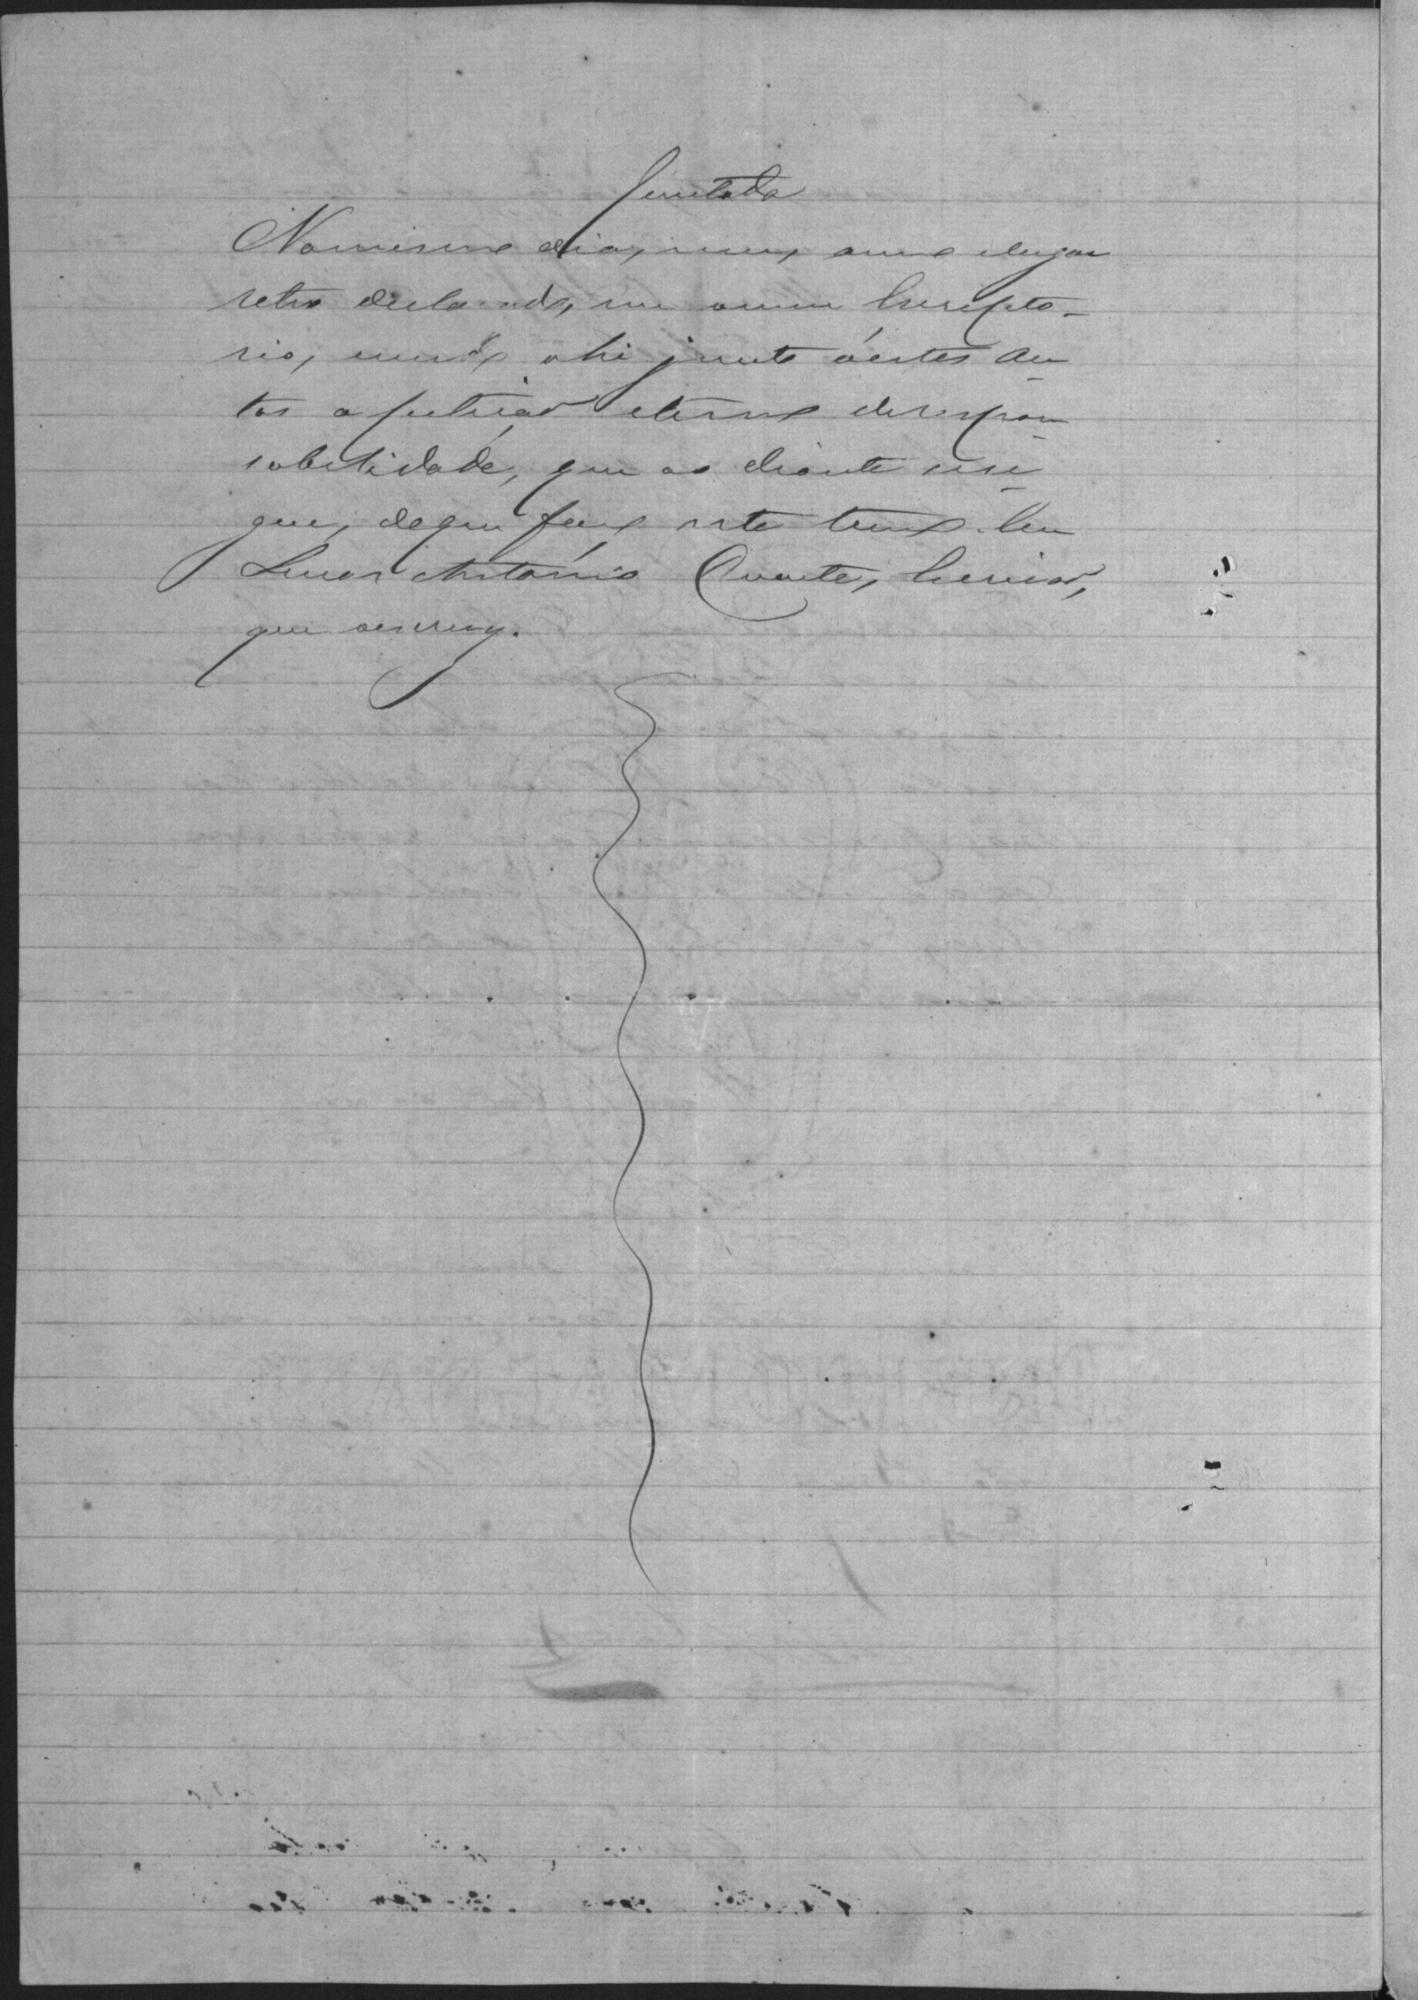 Juntada
No mesmo dia, mez, anno e lugar
retro declarado, em meu Escripto-
rio, sendo ahi junto á estes Au-
tos a petição e termo de respon-
sabelidade, que ao diante se se-
gue; de que faço este termo. Eu
Lucas Antônio Duarte, Escrivão,
que escrevy.